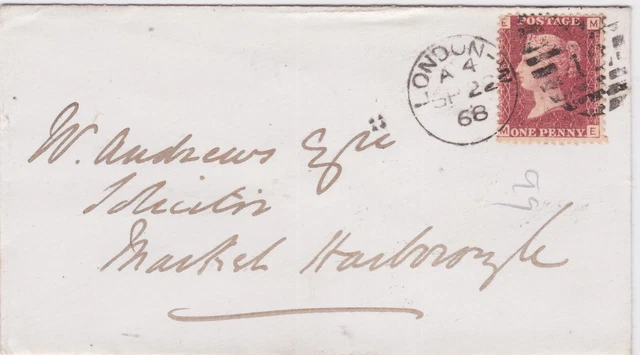 E POSTAGE M
LONDON-W
A 4
SP 22
68
M ONE PENNY E
W. Andrews Esqre
Solicitor
Market Harborough
99